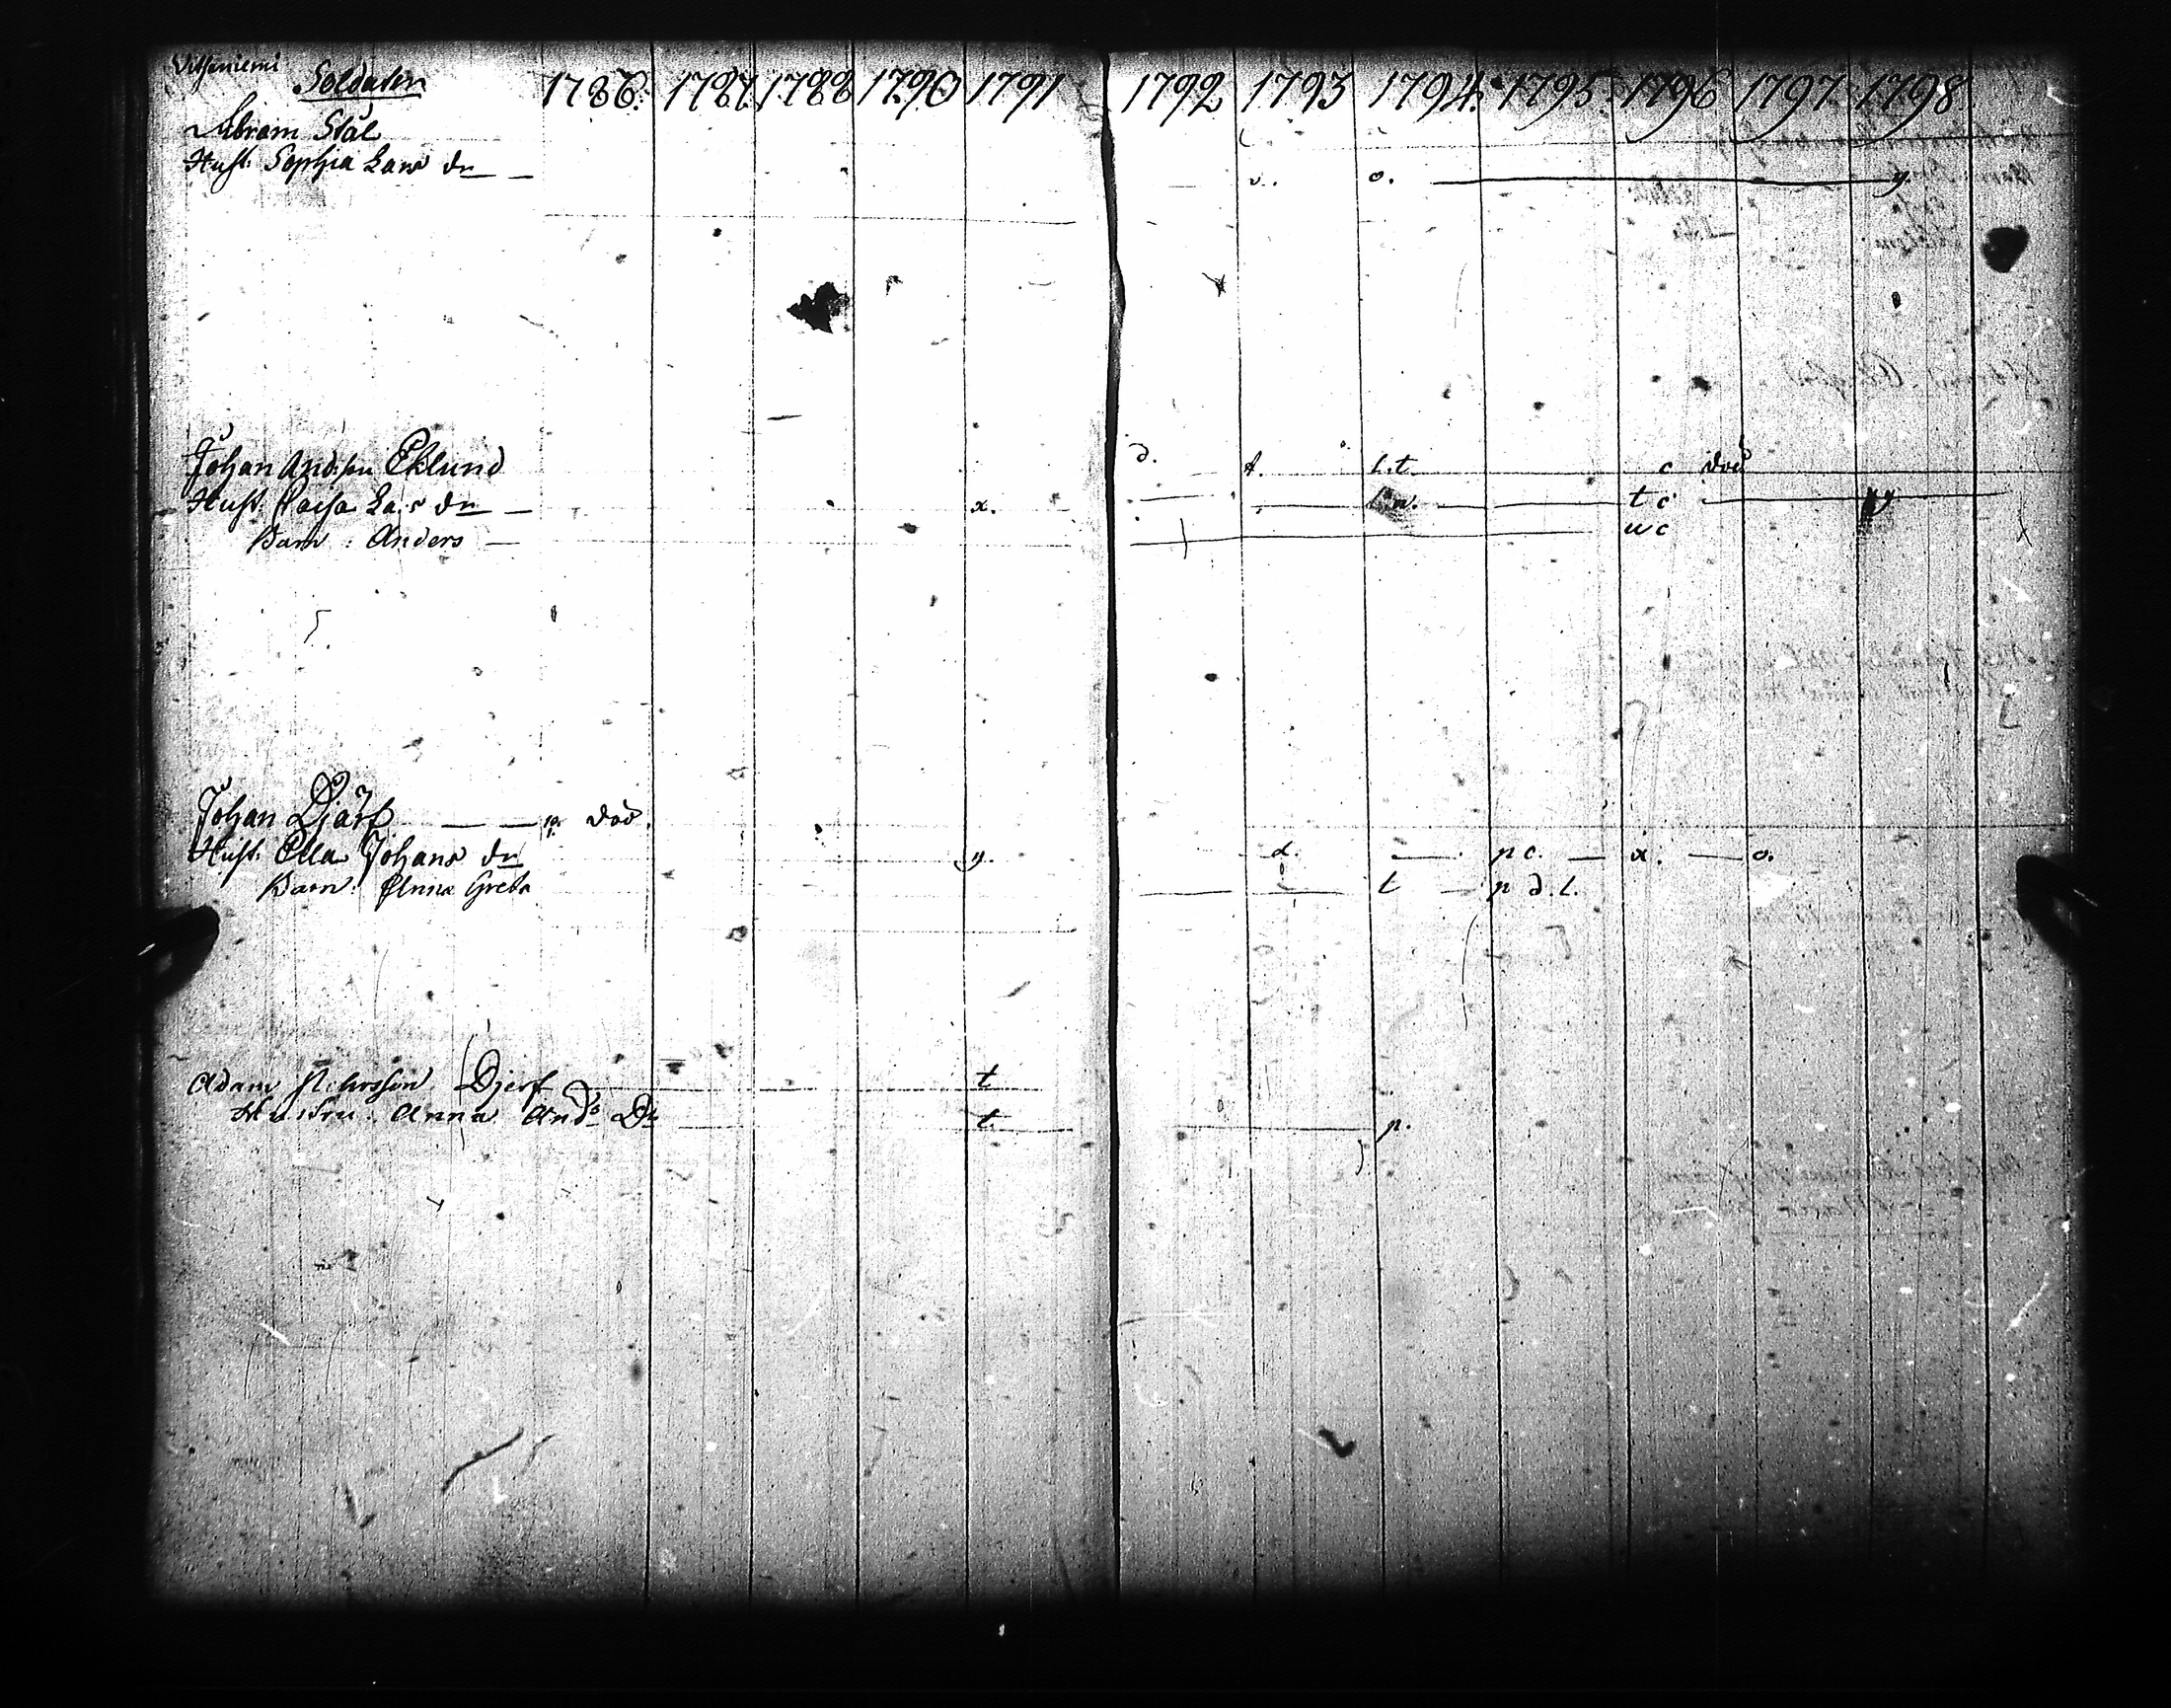 Soldaten 1786. 1787 1788 1790 1791 1792 1793 1794. 1795. 1796 1797 1798
Abram Stål
Hust. Sophia Lars dr — o. — y.
Johan Anders son Eklund d. t. l.t. c död
Hust. Caisa Lars dr — x. t c y
Barn: Anders — w c
Johan Djärf — — p. död.
Hust. Ella Johans dr y. d. — p c. — x. — o.
Barn: Anna Greta t — p d. t.
Adam Djerf t
Hustru: Anna Ands Dr t p.